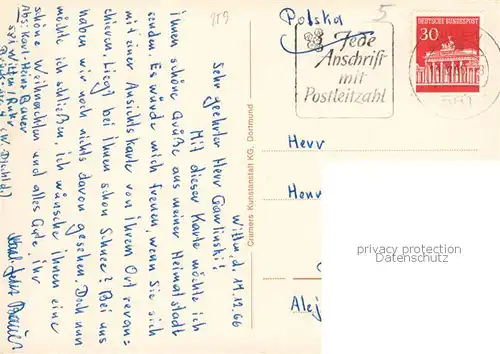 219
Witten, d. 11.12.66
Sehr geehrter Herr Gawlinski!
Mit dieser Karte möchte ich
ihnen schöne Grüße aus meiner Heimatstadt
senden. Es würde mich freuen, wenn Sie sich
mit einer Ansichtskarte von ihrem Ort revan-
chieren. Liegt bei ihnen schon Schnee? Bei uns
haben wir noch nichts davon gesehen. Doch nun
möchte ich schließen, ich wünsche ihnen eine
schöne Weihnachten und alles Gute, ihr
Karl Heinz Bauer
Abs: Karl-Heinz Bauer
581 Witten/Ruhr
(W. Dtschld.)
Cramers Kunstanstalt KG, Dortmund
Polska
5
Jede
Anschrift
mit
Postleitzahl
DEUTSCHE BUNDESPOST
30
Herr
Henr
Alej
privacy protection
Datenschutz